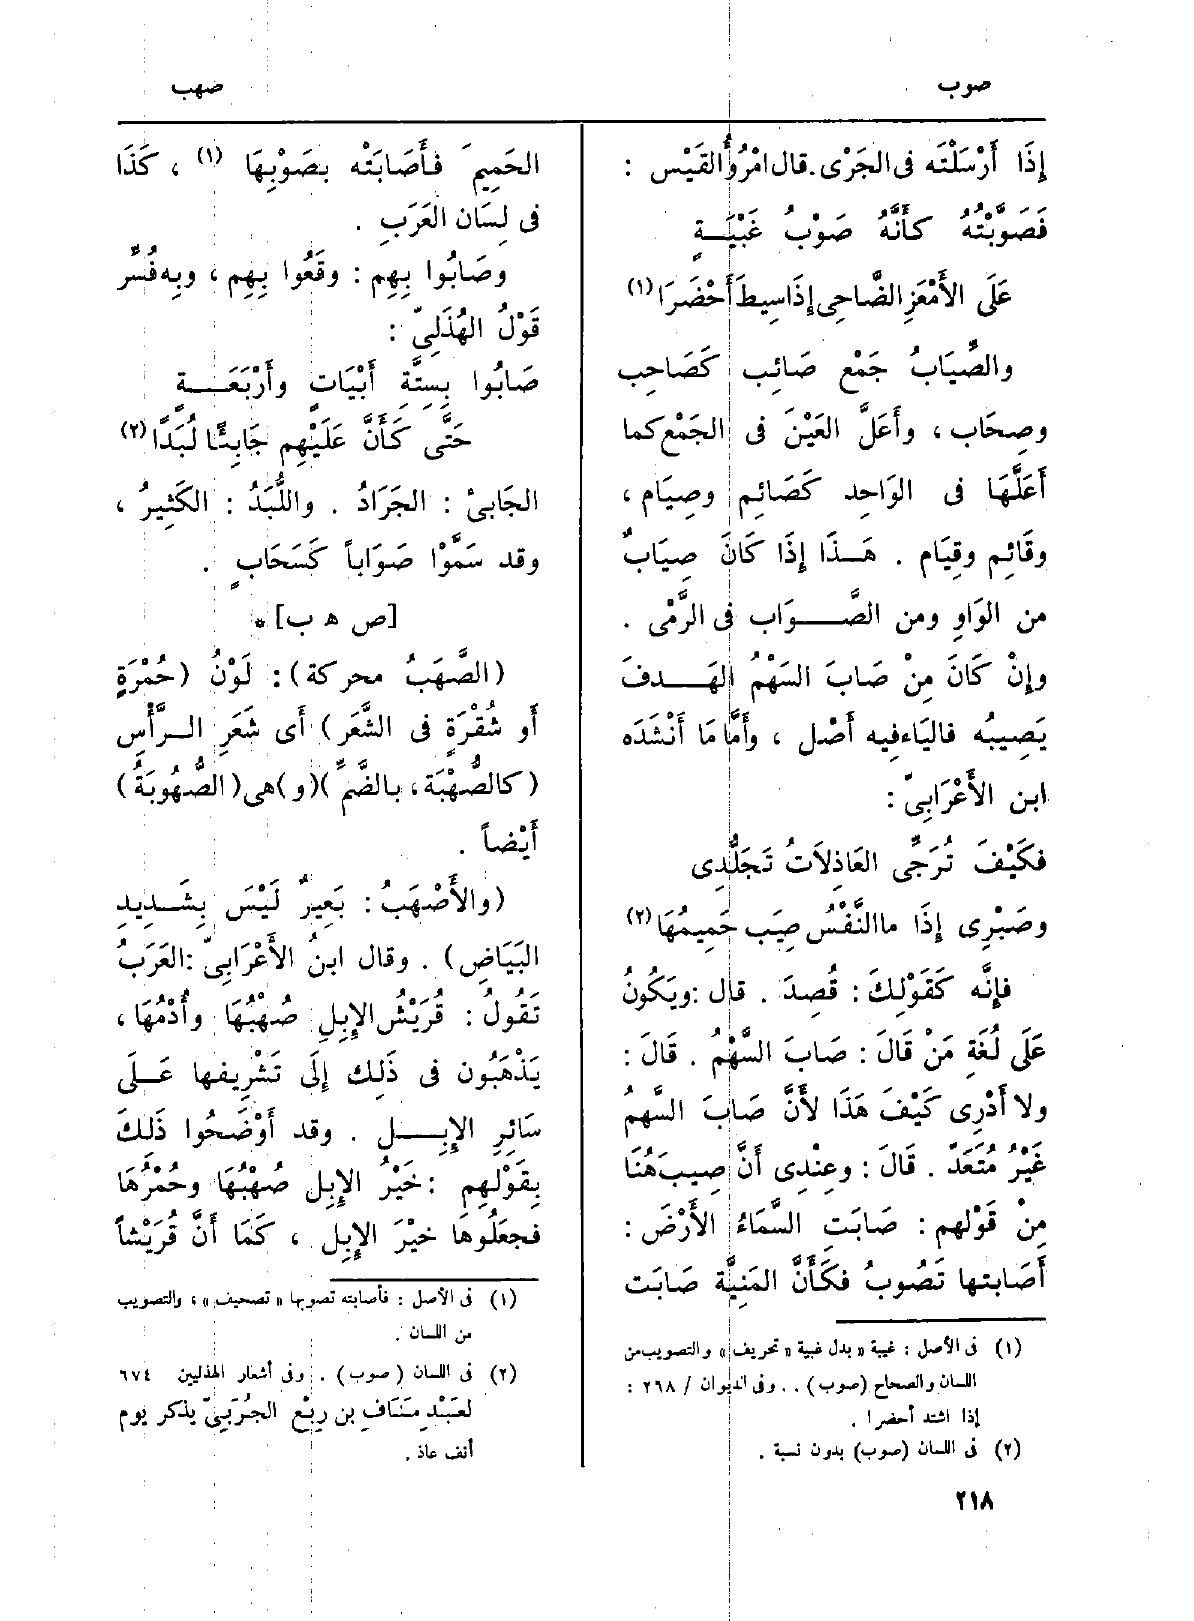 صوب
صهب
إِذَا أَرْسَلْتَه فى الجَرْى. قال امْرُؤُ القَيْس :
فَصَوَّبْتُهُ كأَنَّهُ صَوْبُ غَبْيَــةٍ
عَلَى الأَمْعَزِ الضَّاحِى إِذَا سِيطَ أَحْضَرَا (١)
والصُّيَابُ جَمْع صَائِب كَصَاحِب
وصِحَاب ، وأَعَلَّ العَيْنَ فى الجَمْع كما
أَعَلَّهَا فى الوَاحِد كَصَائِم وصِيَام ،
وقَائِم وقِيَام . هَـــذَا إِذَا كَانَ صِيَابٌ
من الوَاوِ ومن الصَّـــــوَاب فى الرَّمْى .
وإِنْ كَانَ مِنْ صَابَ السَهْمُ الهَــــدفَ
يَصِيبُه فالياء فيه أَصْل ، وأَمَّا مَا أَنْشَدَه
ابن الأَعْرَابِىّ :
فكَيْفَ تُرَجِّى العَاذِلاَتُ تَجَلُّدِى
وصَبْرِى إِذَا ما النَّفْسُ صِيب حَمِيمُهَا (٢)
فإِنَّه كَقَوْلِكَ : قُصِدَ . قال : ويَكُونُ
عَلَى لُغَةِ مَنْ قَالَ : صَابَ السَّهْمُ . قَالَ :
ولا أَدْرِى كَيْفَ هَذَا لأَنَّ صَابَ السَّهمُ
غَيْرُ مُتَعَدّ . قَالَ : وعِنْدِى أَنَّ صِيبَ هُنَا
مِنْ قَوْلهم : صَابَتِ السَّمَاءُ الأَرْضَ :
أَصَابتها تَصُوبُ فكَأَنَّ المَنِيَّة صَابَت
(١) فى الأصل : غيبة « بدل غبية « تحريف » والتصويب من
اللسان والصحاح (صوب) . . وفى الديوان / ٢٦٨ :
إذا اشتد أحضرا .
(٢) فى اللسان (صوب) بدون نسبة .
الحَمِيمَ فأَصَابَتْه بصَوْبِهَا (١) ، كَذَا
فى لِسَان العَرَبِ .
وصَابُوا بِهِم : وقَعُوا بِهِم ، وبِه فُسِّر
قَوْلُ الهُذَلِىّ :
صَابُوا بِسِتَّةِ أَبْيَاتٍ وأَرْبَعَــــةٍ
حَتَّى كَأَنَّ عَلَيْهِم جَابِئًا لُبَدًا (٢)
الجَابِىْ : الجَرَادُ . واللُّبَدُ : الكَثِيرُ ،
وقد سَمَّوْا صَوَاباً كَسَحَابٍ .
[ص ه ب] *
(الصَّهَبُ محركة) : لَوْنُ (حُمْرَةٍ
أَو شُقْرَةٍ فى الشَّعَر) أَى شَعَرِ الــرَّأْسِ
(كالصُّهْبَة، بالضَّمِّ )(و) هى (الصُّهُوبَةُ)
أَيْضاً .
(والأَصْهَبُ : بَعِيرٌ لَيْسَ بِشَــدِيدِ
البَيَاضِ) . وقال ابنُ الأَعْرَابِىّ : العَرَبُ
تَقُولُ : قُرَيْشُ الإِبِلِ صُهْبُهَا وأُدْمُهَا ،
يَذْهَبُون فى ذَلِك إِلَى تَشْرِيفها عَــلَى
سَائِرِ الإِبِـــــل . وقد أَوْضَحُوا ذَلِكَ
بِقَوْلهِم : خَيْرُ الإِبِل صُهْبُهَا وحُمْرُهَا
فجعَلُوهَا خيْرَ الإِبِل ، كَمَا أَنَّ قُرَيْشاً
(١) فى الأصل : فأصابته تصوبها « تصحيف » ، والتصويب
من اللسان .
(٢) فى اللسان ( صوب ) . وفى أشعار الهذليين ٦٧٤
لعَبْدِ مَنَافِ بن رِبْع الجُرَبِىّ يذكر يوم
أنف عاذ .
٢١٨